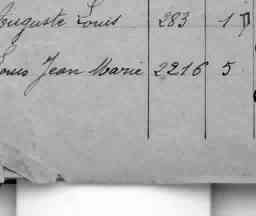 Auguste Louis 283 1
Louis Jean Marie 2216 5